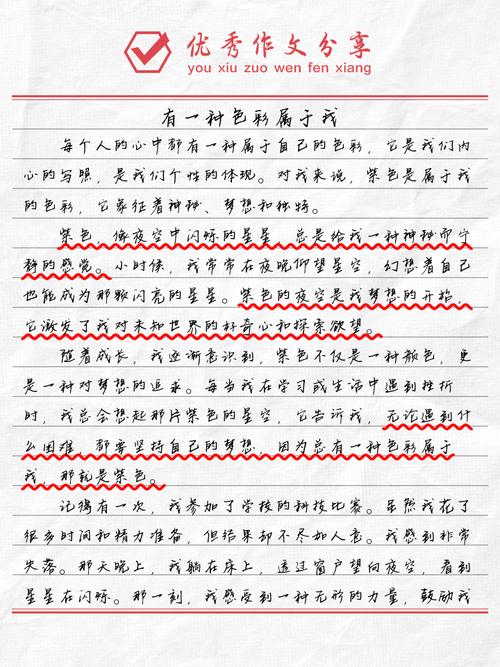 优秀作文分享
you xiu zuo wen fen xiang
有一种色彩属于我
每个人的心中都有一种属于自己的色彩，它是我们内
心的写照，是我们个性的体现。对我来说，紫色是属于我
的色彩，它象征着神秘、梦想和独特。
紫色，像夜空中闪烁的星星，总是给我一种神秘而宁
静的感觉。小时候，我常常在夜晚仰望星空，幻想着自己
也能成为那颗闪亮的星星。紫色的夜空是我梦想的开始，
它激发了我对未知世界的好奇心和探索欲望。
随着成长，我逐渐意识到，紫色不仅是一种颜色，更
是一种对梦想的追求。每当我在学习或生活中遇到挫折
时，我总会想起那片紫色的星空，它告诉我，无论遇到什
么困难，都要坚持自己的梦想，因为总有一种色彩属于
我，那就是紫色。
记得有一次，我参加了学校的科技比赛。虽然我花了
很多时间和精力准备，但结果却不尽如人意。我感到非常
失落。那天晚上，我躺在床上，透过窗户望向夜空，看到
星星在闪烁。那一刻，我感受到一种无形的力量，鼓励我